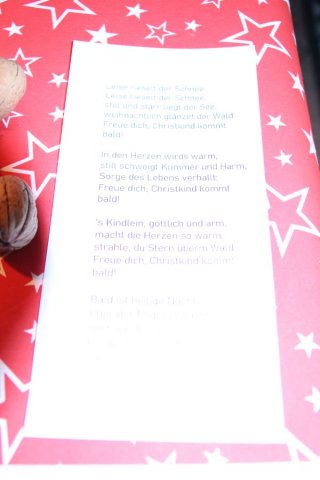 Leise rieselt der Schnee
Leise rieselt der Schnee,
still und starr liegt der See,
weihnachtlich glänzet der Wald
Freue dich, Christkind kommt
bald!
In den Herzen wirds warm,
still schweigt Kummer und Harm,
Sorge des Lebens verhallt:
Freue dich, Christkind kommt
bald!
's Kindlein, göttlich und arm,
macht die Herzen so warm,
strahle, du Stern überm Wald
Freue dich, Christkind kommt
bald!
Bald ist heilige Nacht